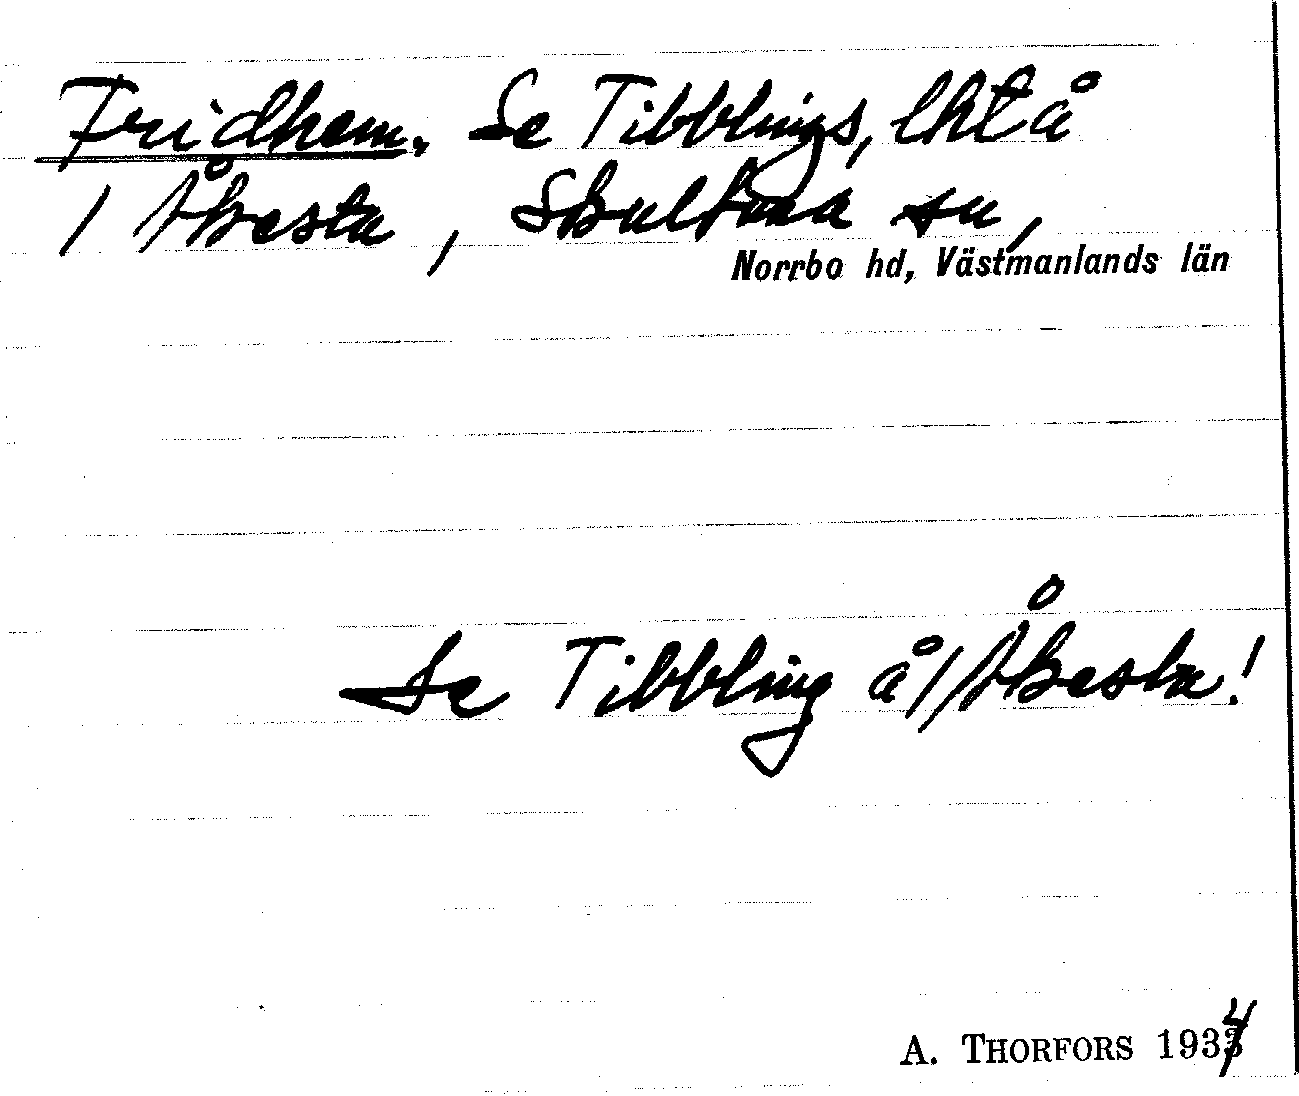 Fridhem. Se Tibblings, lht å
1 Åbesta, Skultuna sn,
Norrbo hd, Västmanlands län
Se Tibbling å 1/1 Åbesta!
A. THORFORS 1934